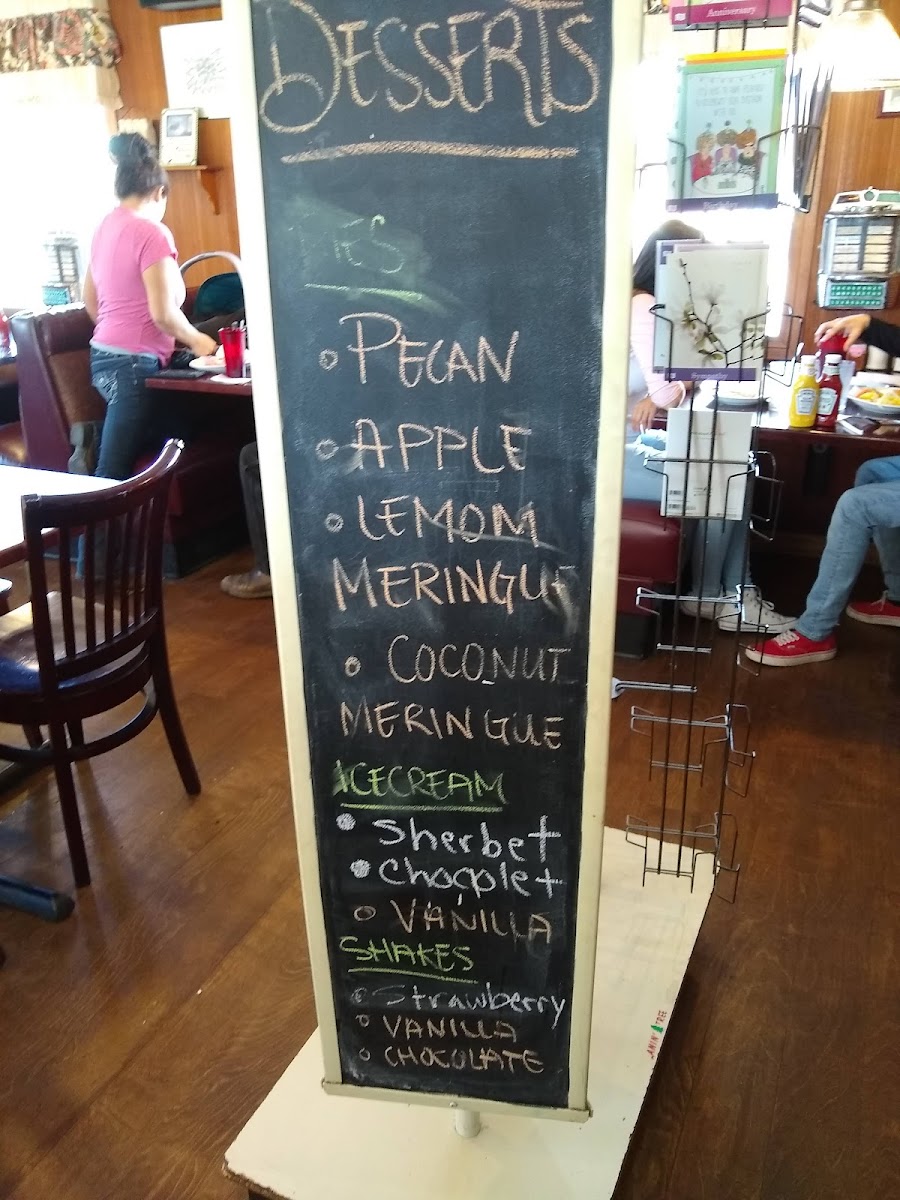 Anniversary
DESSERTS
Birthday
PIES
• PECAN
• APPLE
• LEMOM
MERINGUE
Sympathy
• COCONUT
MERINGUE
ICECREAM
• Sherbet
• Chocolet
• VANILLA
SHAKES
• Strawberry
• VANILLA
• CHOCOLATE